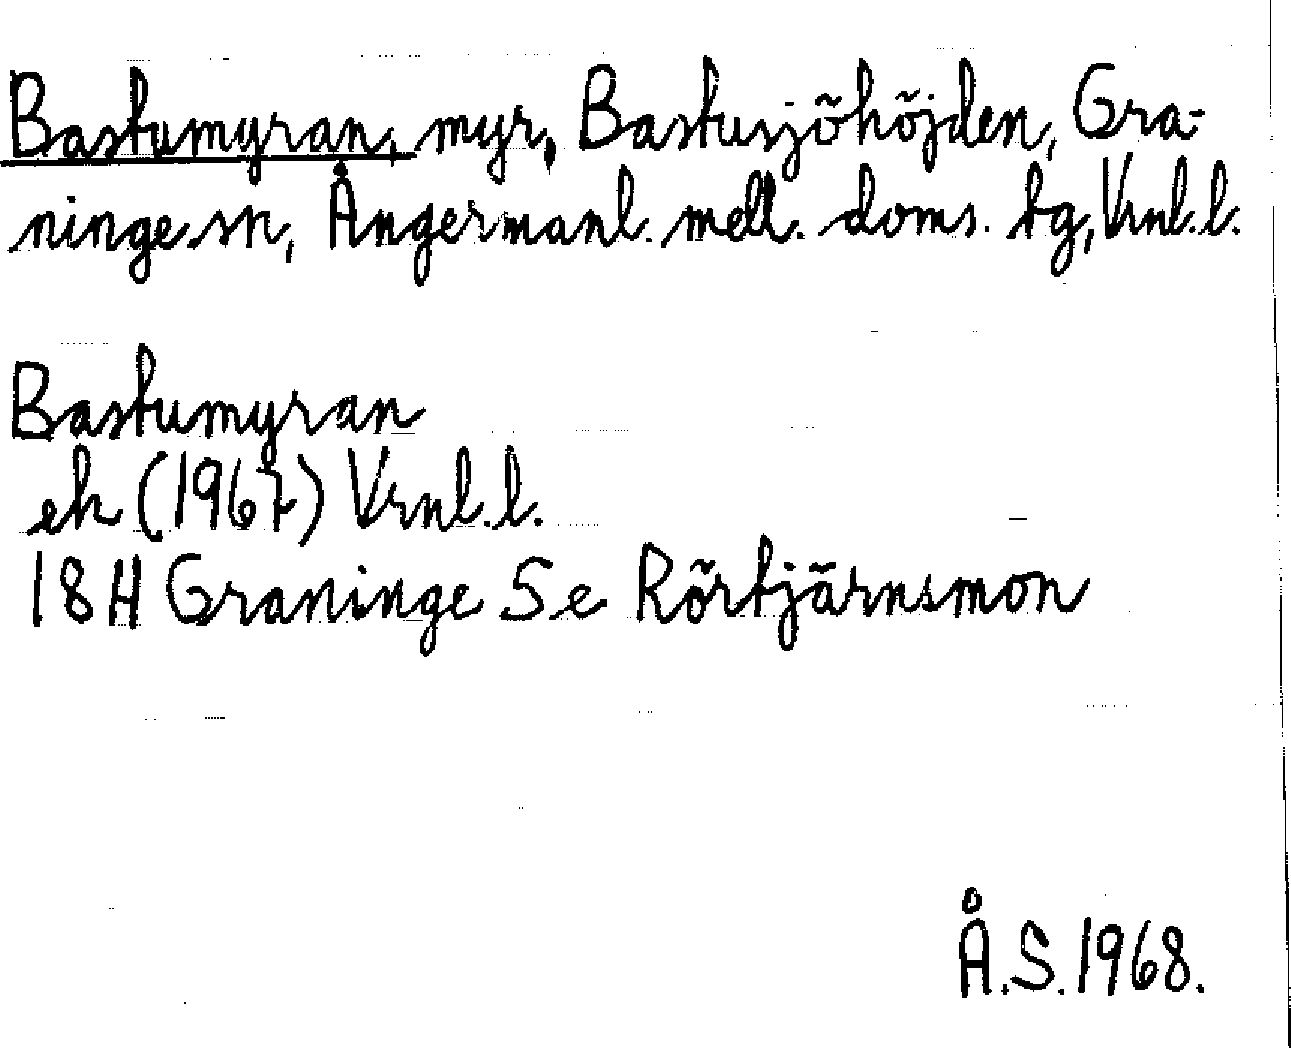 Bastumyran, myr, Bastusjöhöjden, Gra-
ninge sn, Ångermanl. mell. doms. tg, Vrnl. l.
Bastumyran
ek (1967) Vrnl. l.
18H Graninge Se Rörtjärnsmon
Å.S. 1968.